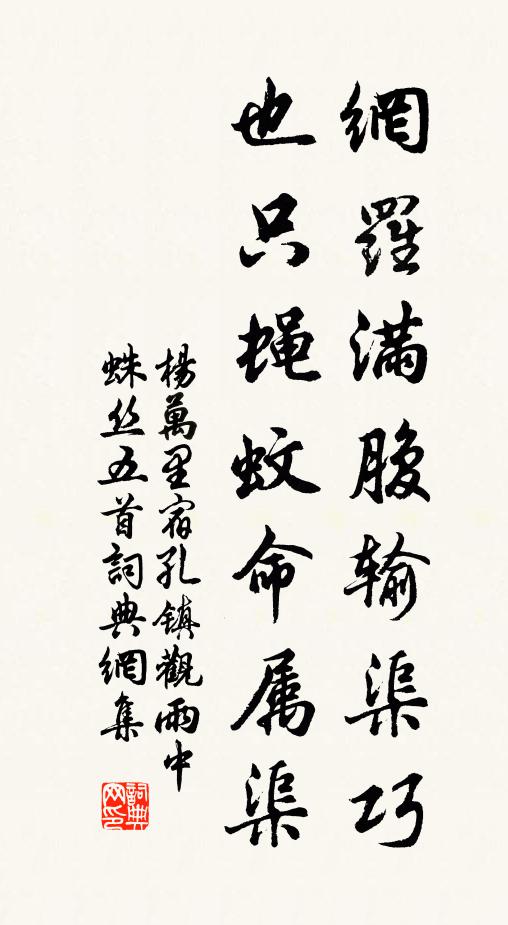 網羅滿腹输渠巧
也只蝇蚊命属渠
楊萬里宿孔镇觀雨中
蛛丝五首詞典網集
詞典网印